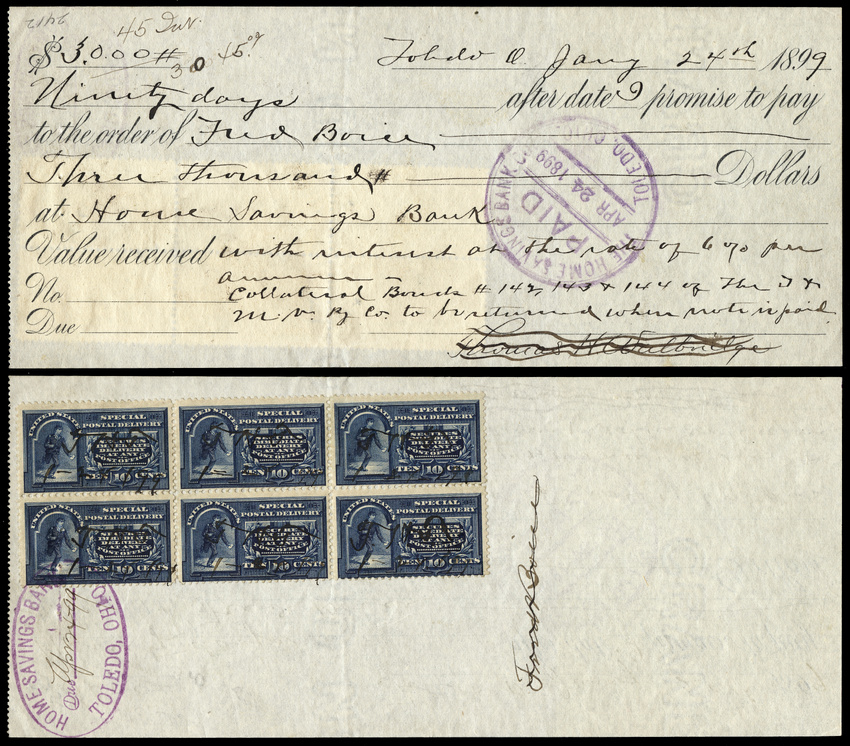 45 Int.
$3000# 30 45.09
Toledo O. Jany 24th 1899
Ninety days after date I promise to pay
to the order of Fred Boice
Three thousand # Dollars
at Home Savings Bank
Value received with interest at the rate of 6% per
annum
No. Collateral Bonds # 142, 143 & 144 of The T &
Due M. V. Ry Co. to be returned when note is paid
Thomas H. Walbridge
THE HOME SAVINGS BANK CO. TOLEDO, OHIO
PAID
APR 24 1899
UNITED STATES SPECIAL POSTAL DELIVERY
SECURES IMMEDIATE DELIVERY AT ANY POST OFFICE
TEN 10 CENTS
UNITED STATES SPECIAL POSTAL DELIVERY
SECURES IMMEDIATE DELIVERY AT ANY POST OFFICE
TEN 10 CENTS
UNITED STATES SPECIAL POSTAL DELIVERY
SECURES IMMEDIATE DELIVERY AT ANY POST OFFICE
TEN 10 CENTS
UNITED STATES SPECIAL POSTAL DELIVERY
SECURES IMMEDIATE DELIVERY AT ANY POST OFFICE
TEN 10 CENTS
UNITED STATES SPECIAL POSTAL DELIVERY
SECURES IMMEDIATE DELIVERY AT ANY POST OFFICE
TEN 10 CENTS
UNITED STATES SPECIAL POSTAL DELIVERY
SECURES IMMEDIATE DELIVERY AT ANY POST OFFICE
TEN 10 CENTS
HOME SAVINGS BANK
Due Apr 24 99
TOLEDO, OHIO
Fred Boice